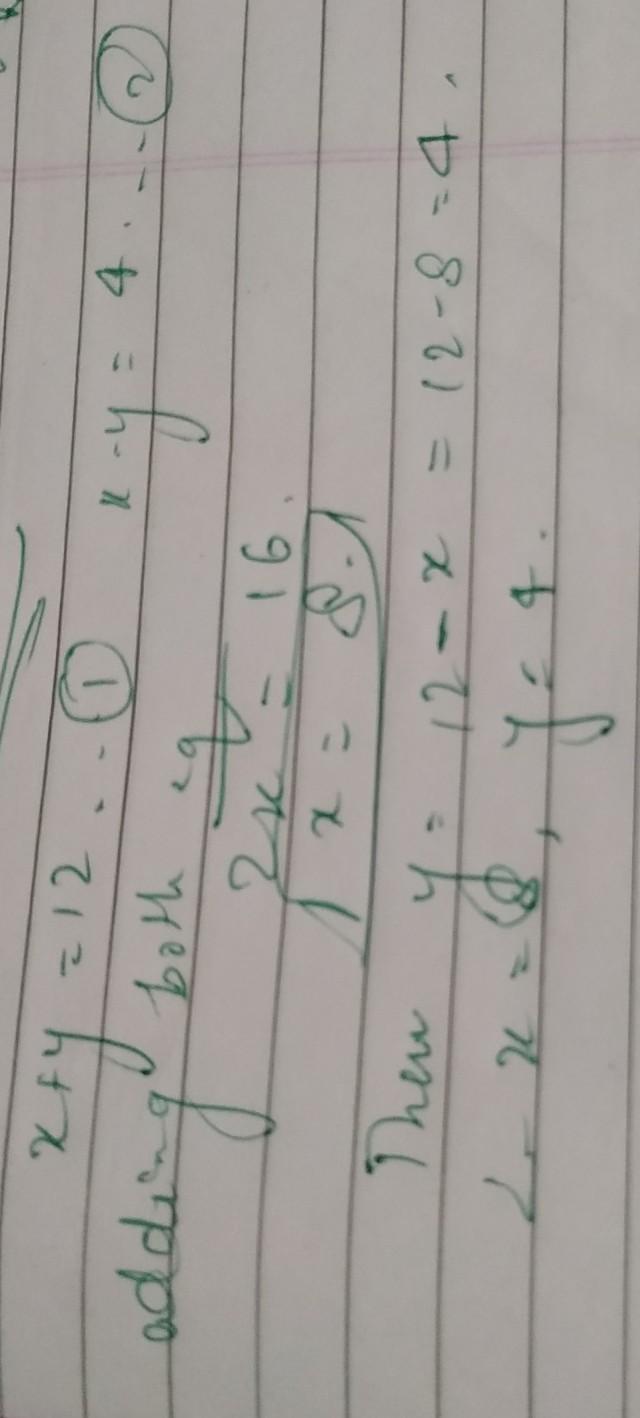 x+y = 12 . . . ① x-y = 4 . -- ②
adding both eq
2x = 16.
x = 8.
Then y = 12 - x = 12 - 8 = 4.
x = 8, y = 4.